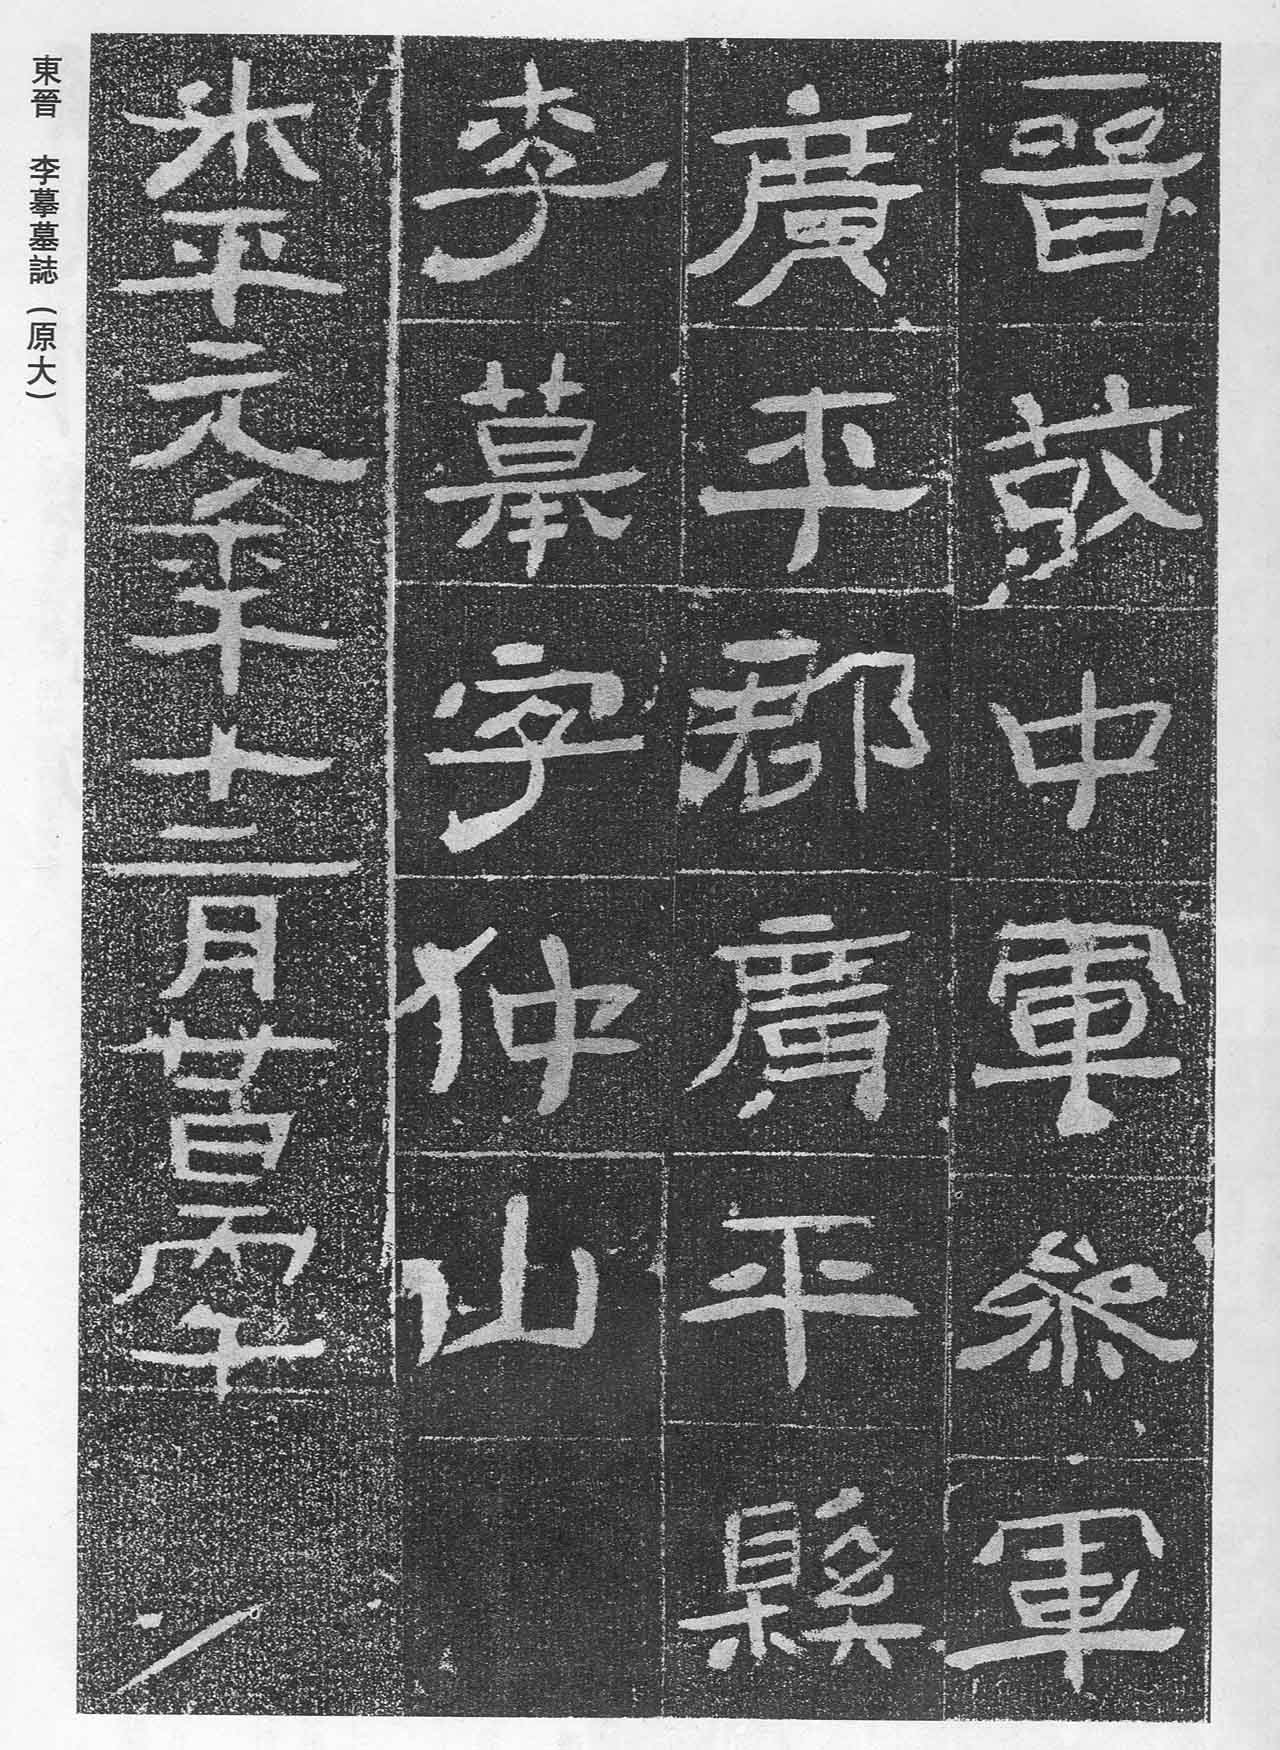 晉故中軍參軍
廣平郡廣平縣
李摹字仲山
升平元年十二月廿日丙午
東晉 李摹墓誌(原大)